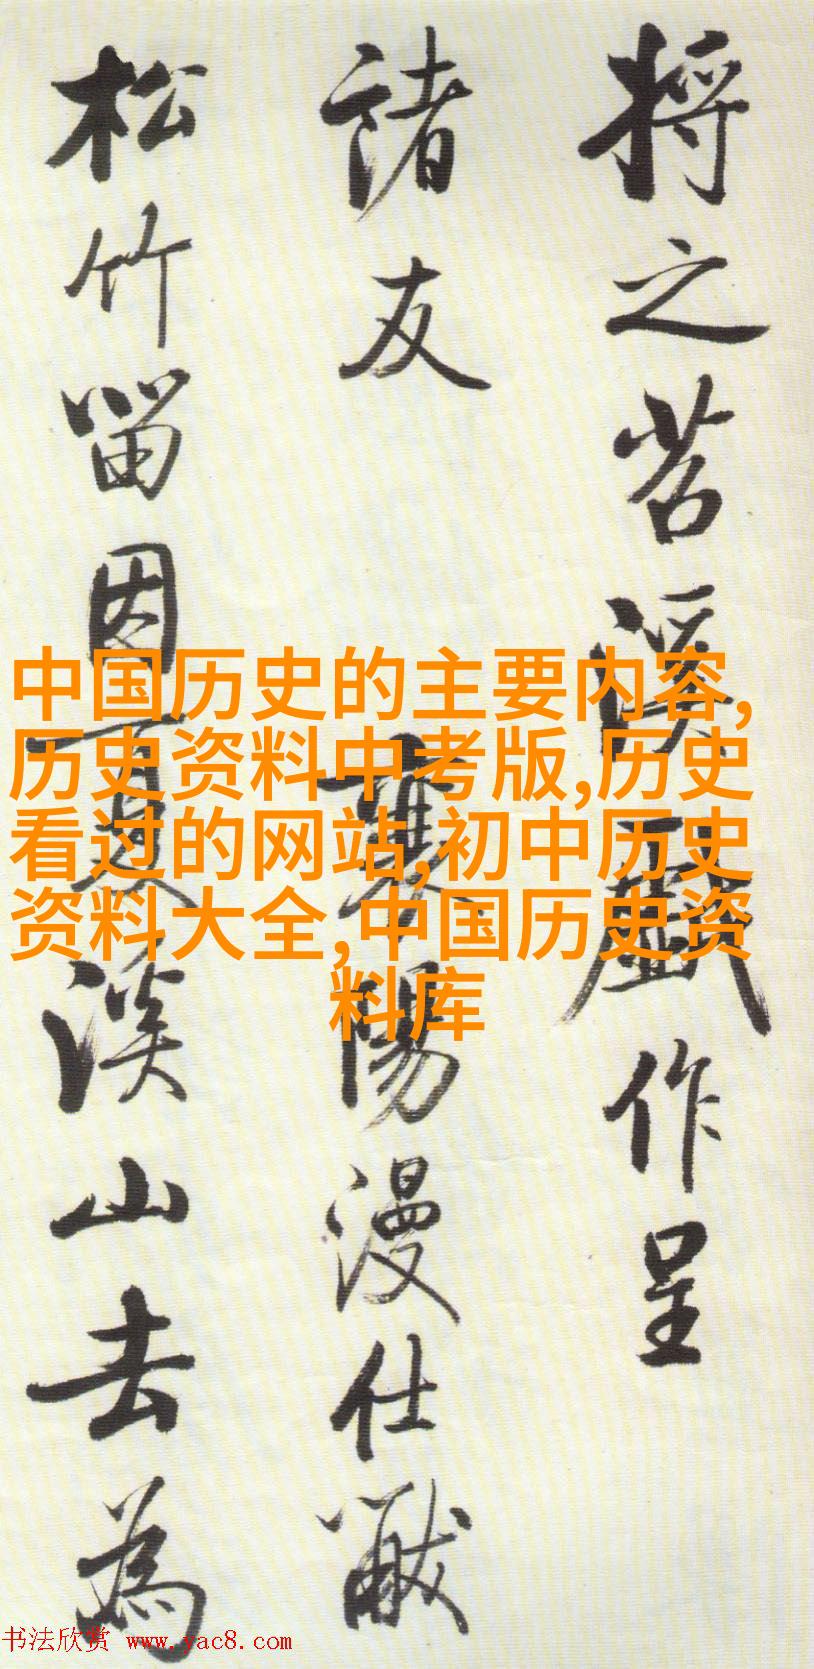 將之苕溪戲作呈
諸友 襄陽漫仕黻
松竹留因夏溪山去為
中国历史的主要内容,
历史资料中考版,历史
看过的网站,初中历史
资料大全,中国历史资
料库
书法欣赏 www.yac8.com